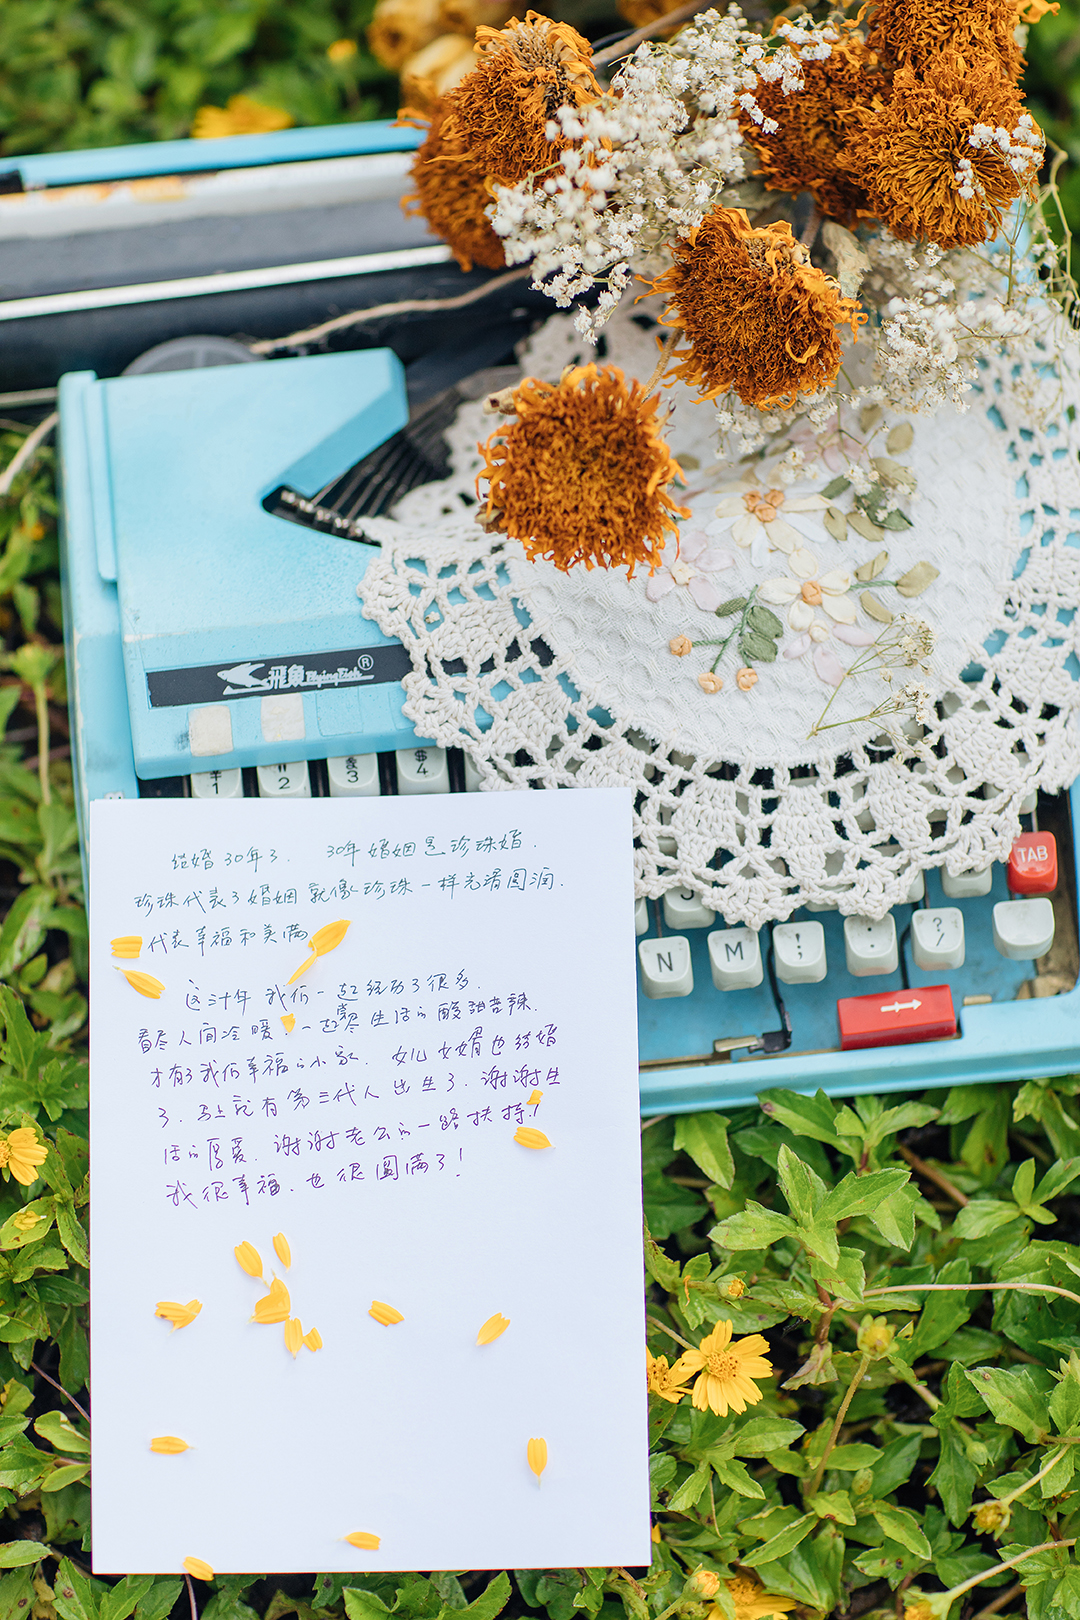 飛魚 Flying Fish ®
¥ " $ $
1 2 3 4
TAB
N M ! : ?
; . /
结婚30年了. 30年婚姻是珍珠婚.
珍珠代表了婚姻就像珍珠一样光滑圆润.
代表幸福和美满
这三十年 我们一起经历了很多.
看尽人间冷暖. 一起尝尽生活的酸甜苦辣.
才有了我们幸福的小家. 女儿女婿也结婚
了. 马上就有第三代人出生了. 谢谢生
活的厚爱. 谢谢老公的一路扶持!
我很幸福. 也很圆满了!